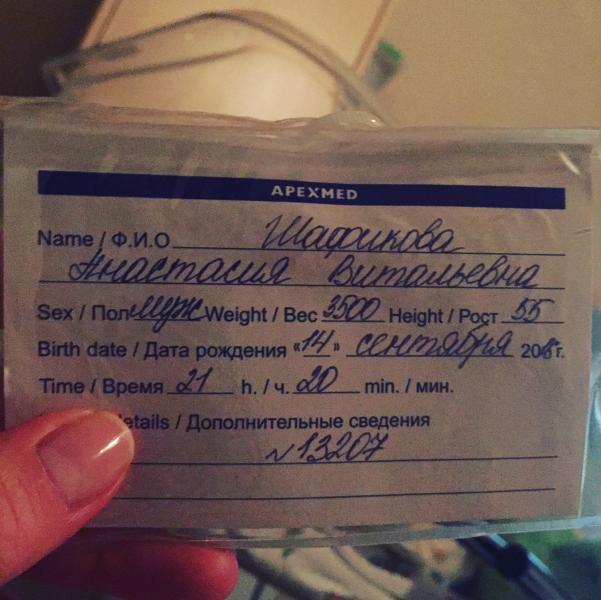 APEXMED
Name / Ф.И.О Шафикова
Анастасия Витальевна
Sex / Пол муж Weight / Вес 3500 Height / Рост 55
Birth date / Дата рождения «14» сентября 20 г.
Time / Время 21 h. / ч. 20 min. / мин.
etails / Дополнительные сведения
№13207